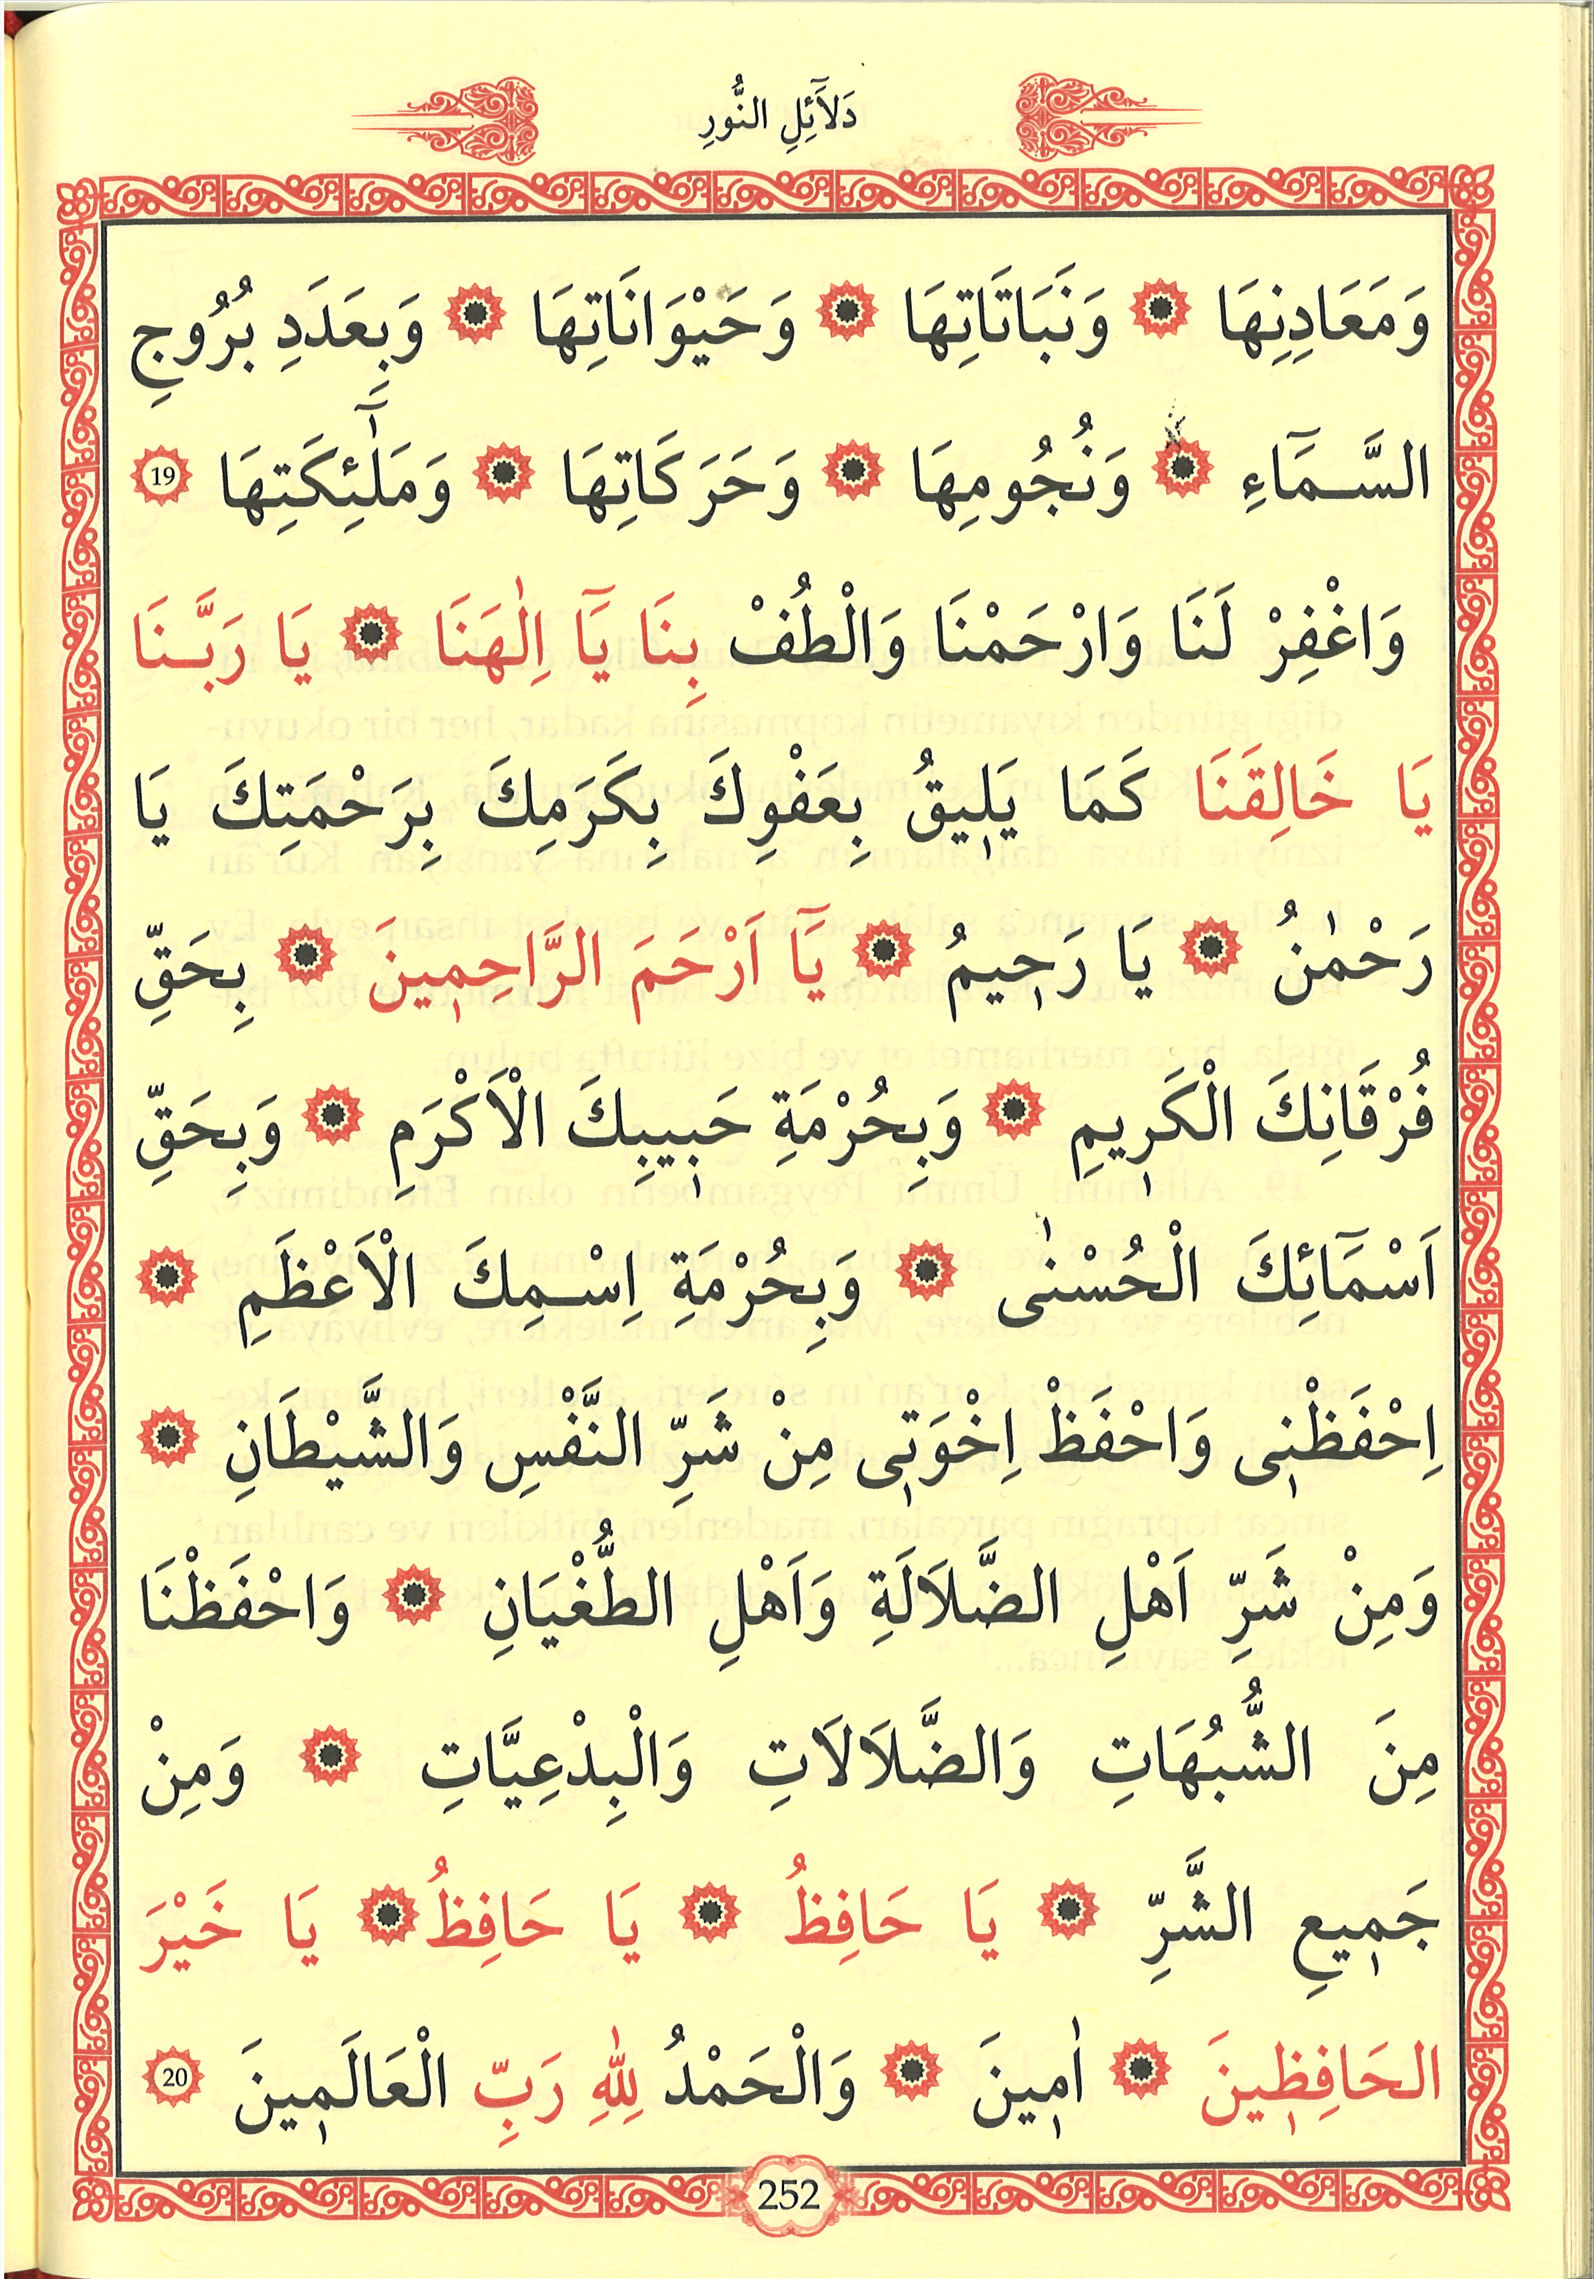 دَلَآئِلِ النُّورِ
وَمَعَادِنِهَا ۞ وَنَبَاتَاتِهَا ۞ وَحَيْوَانَاتِهَا ۞ وَبِعَدَدِ بُرُوجِ
السَّمَآءِ ۞ وَنُجُومِهَا ۞ وَحَرَكَاتِهَا ۞ وَمَلٰٓئِكَتِهَا 19
وَاغْفِرْ لَنَا وَارْحَمْنَا وَالْطُفْ بِنَا يَٓا اِلٰهَنَا ۞ يَا رَبَّنَا
يَا خَالِقَنَا كَمَا يَلِيقُ بِعَفْوِكَ بِكَرَمِكَ بِرَحْمَتِكَ يَا
رَحْمٰنُ ۞ يَا رَحِيمُ ۞ يَٓا اَرْحَمَ الرَّاحِمِينَ ۞ بِحَقِّ
فُرْقَانِكَ الْكَرِيمِ ۞ وَبِحُرْمَةِ حَبِيبِكَ الْاَكْرَمِ ۞ وَبِحَقِّ
اَسْمَآئِكَ الْحُسْنٰى ۞ وَبِحُرْمَةِ اِسْمِكَ الْاَعْظَمِ ۞
اِحْفَظْنِى وَاحْفَظْ اِخْوَتِى مِنْ شَرِّ النَّفْسِ وَالشَّيْطَانِ ۞
وَمِنْ شَرِّ اَهْلِ الضَّلَالَةِ وَاَهْلِ الطُّغْيَانِ ۞ وَاحْفَظْنَا
مِنَ الشُّبُهَاتِ وَالضَّلَالَاتِ وَالْبِدْعِيَّاتِ ۞ وَمِنْ
جَمِيعِ الشَّرِّ ۞ يَا حَافِظُ ۞ يَا حَافِظُ ۞ يَا خَيْرَ
الحَافِظِينَ ۞ اٰمِينَ ۞ وَالْحَمْدُ لِلّٰهِ رَبِّ الْعَالَمِينَ 20
252